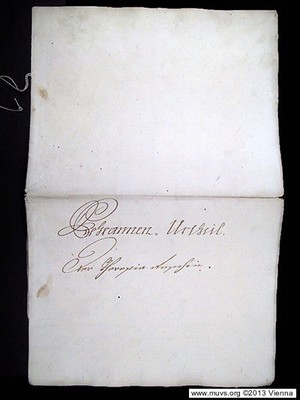 Schrannen-Urtheil.
Der Theresia
www.muvs.org ©2013 Vienna